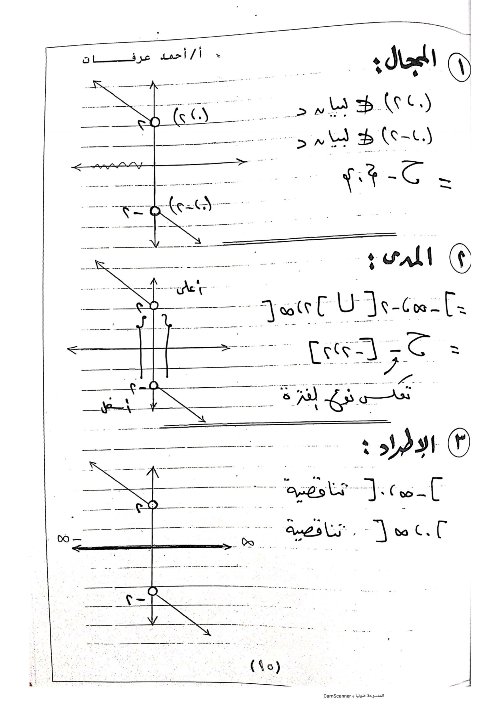 أ/أحمد عرفات
① المجال:
(٠، ٢) ∉ لبيان د
(٠، -٢) ∉ لبيان د
= ح - {٠}
٢
(٠، ٢)
-٢
(٠، -٢)
② المدى:
= ]-∞، -٢[ ∪ ]٢، ∞[
= ح - [-٢، ٢]
تعكس نوع الفترة
أعلى
٢
-٢
أسفل
③ الإطراد:
]-∞، ٠[ تناقصية
]٠، ∞[ تناقصية
٢
-∞
∞
-٢
(١٥)
الممسوحة ضوئيا بـ CamScanner